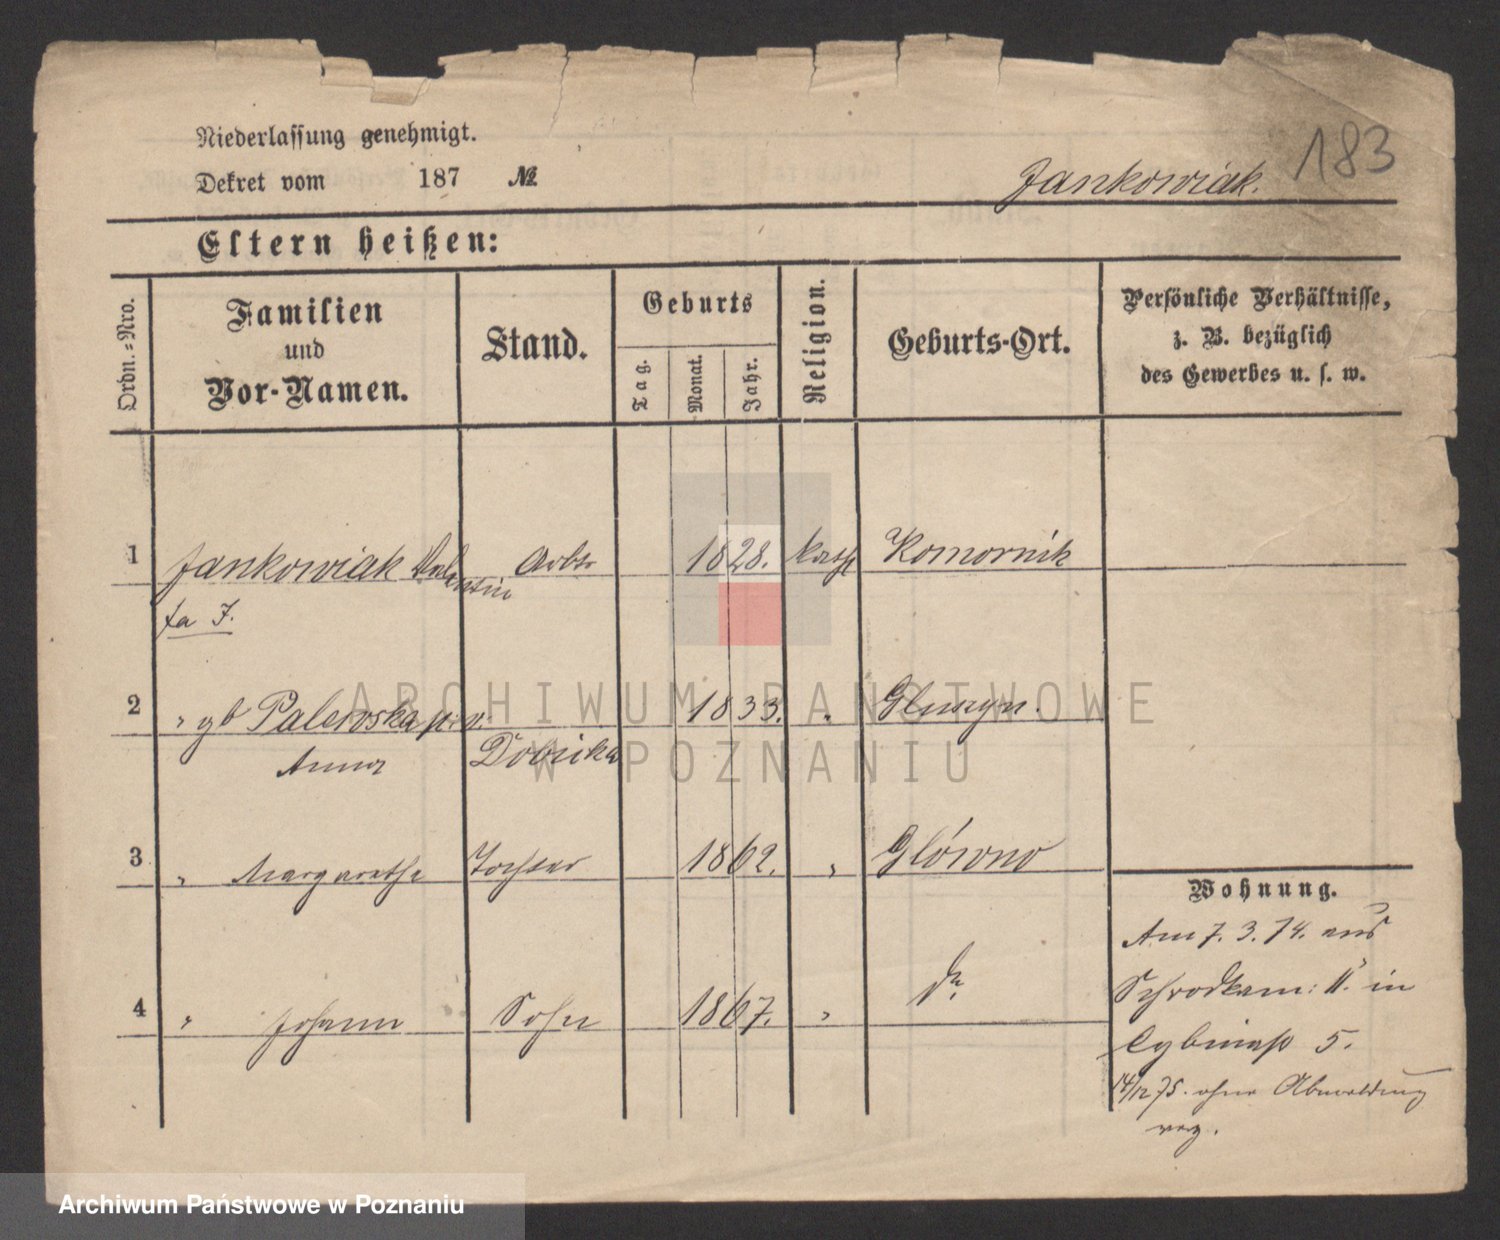 183
Niederlassung genehmigt.
Dekret vom 187 №
Jankowiak.
Eltern heißen:
Ordn.-Nro.
Familien
und
Vor-Namen.
Stand.
Geburts
Tag.
Monat.
Jahr.
Religion.
Geburts-Ort.
Persönliche Verhältnisse,
z. B. bezüglich
des Gewerbes u. s. w.
1 Jankowiak Valentin Arbtr 1828. kath Komornik
2 " gb 1833. "
Anna
3 " Margarethe Tochter 1862. " Glówno
4 " Johann Sohn 1867. " do.
Wohnung.
Am 7. 3. 74. aus
Schrodkam: 11. in
Cybinaſtr 5.
14/12 75. ohne Abmeldung
verz.
ARCHIWUM PAŃSTWOWE
W POZNANIU
Archiwum Państwowe w Poznaniu